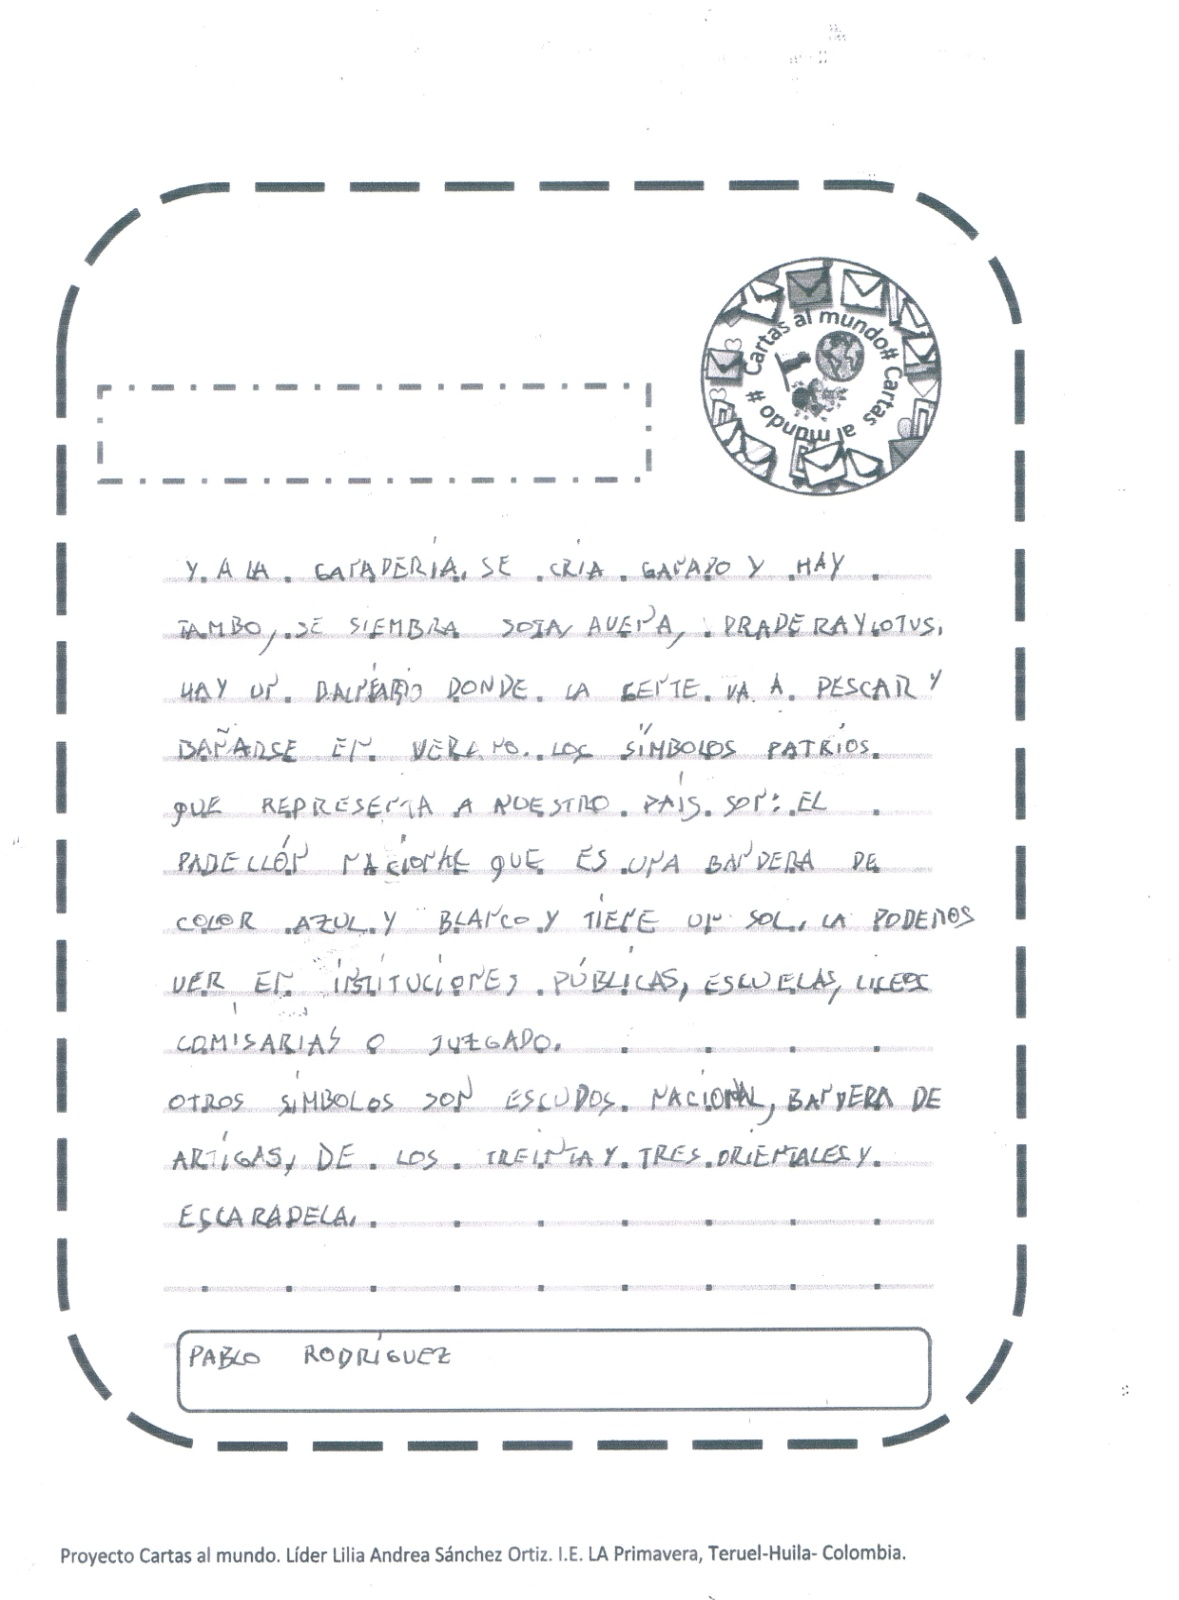 # Cartas al mundo # Cartas al mundo
Y A LA GANADERÍA, SE CRÍA GANADO Y HAY
TAMBO, SE SIEMBRA SOJA, AVENA, PRADERA Y LOTUS.
HAY UN BALNEÁRIO DONDE LA GENTE VA A PESCAR Y
BAÑARSE EN VERANO. LOS SÍMBOLOS PATRIOS
QUE REPRESENTA A NUESTRO PAÍS SON: EL
PABELLÓN NACIONAL QUE ES UNA BANDERA DE
COLOR AZUL Y BLANCO Y TIENE UN SOL, LA PODEMOS
VER EN INSTITUCIONES PÚBLICAS, ESCUELAS, LICEOS
COMISARÍAS O JUZGADO.
OTROS SÍMBOLOS SON ESCUDOS NACIONAL, BANDERA DE
ARTIGAS, DE LOS TREINTA Y TRES ORIENTALES Y
ESCARAPELA.
PABLO RODRÍGUEZ
Proyecto Cartas al mundo. Líder Lilia Andrea Sánchez Ortiz. I.E. LA Primavera, Teruel-Huila- Colombia.